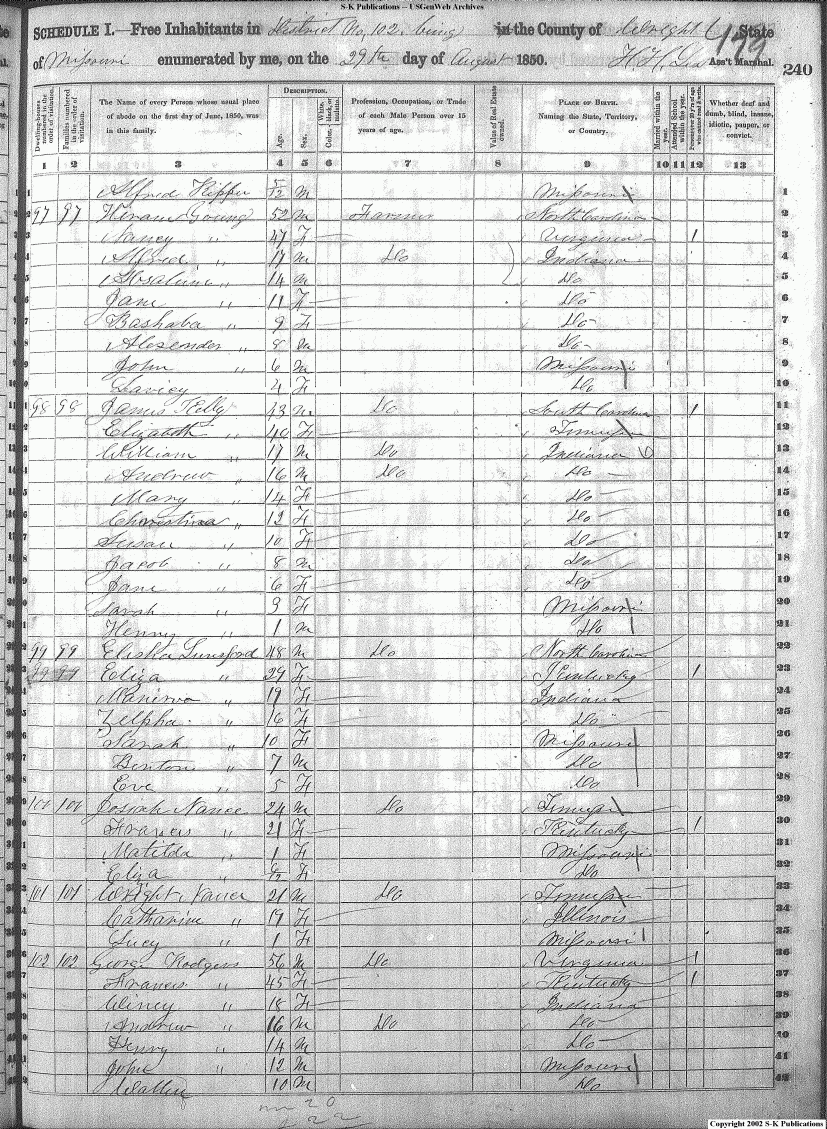 S-K Publications -- USGenWeb Archives
SCHEDULE I.—Free Inhabitants in District No, 102, being in the County of Wright State
179
of Missouri enumerated by me, on the 29th day of August 1850. H. H. Ass't Marshal.
240
Dwelling-houses numbered in the order of visitation.
Families numbered in the order of visitation.
The Name of every Person whose usual place of abode on the first day of June, 1850, was in this family.
DESCRIPTION.
Age.
Sex.
Color, White, black, or mulatto.
Profession, Occupation, or Trade of each Male Person over 15 years of age.
Value of Real Estate owned.
PLACE OF BIRTH. Naming the State, Territory, or Country.
Married within the year.
Attended School within the year.
Persons over 20 y'rs of age who cannot read & write.
Whether deaf and dumb, blind, insane, idiotic, pauper, or convict.
1 2 3 4 5 6 7 8 9 10 11 12 13
1 Alfred 5/12 M Missouri 1
2 97 97 Hiram Young 52 M Farmer North Carolina 2
3 Nancy " 47 F Virginia 1 3
4 Alfred " 17 M Do Indiana 4
5 " 14 M Do 5
6 Jane " 11 F Do 6
7 Bashaba " 9 F Do 7
8 Alexander " 8 M Do 8
9 John " 6 M Missouri 9
10 4 F Do 10
11 98 98 James Kelly 43 M Do South Carolina 1 11
12 Elizabeth " 40 F Tennessee 12
13 William " 17 M Do Indiana 13
14 Andrew " 16 M Do Do 14
15 Mary " 14 F Do 15
16 Christina " 12 F Do 16
17 Susan " 10 F Do 17
18 Jacob " 8 M Do 18
19 Jane " 6 F Do 19
20 Sarah " 3 F Missouri 20
21 Henry " 1 M Do 21
22 99 99 Elisha Lunsford 48 M Do North Carolina 22
23 99 99 Eliza " 29 F Kentucky 1 23
24 Manerva " 19 F Indiana 24
25 Zelpha " 16 F Do 25
26 Sarah " 10 F Missouri 26
27 Benton " 7 M Do 27
28 Eve " 5 F Do 28
29 100 100 Josiah Nance 24 M Do Tennessee 29
30 Francis " 21 F Kentucky 1 30
31 Matilda " 1 F Missouri 31
32 Eliza " F Do 32
33 101 101 Wright Nance 21 M Do Tennessee 33
34 Catharine " 19 F Illinois 34
35 Lucy " 1 F Missouri 35
36 102 102 George Rodgers 56 M Do Virginia 1 36
37 Francis " 45 F Kentucky 1 37
38 Winey " 18 F Indiana 38
39 Andrew " 16 M Do Do 39
40 Henry " 14 M Do 40
41 John " 12 M Missouri 41
42 10 M Do 42
m 20
f 22
Copyright 2002 S-K Publications